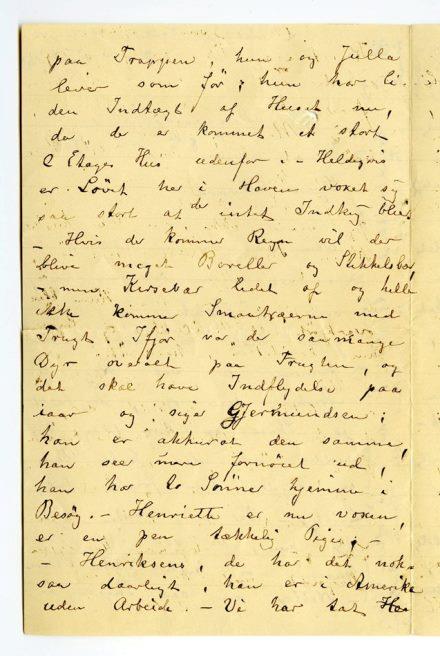 paa Trappen, hun og Julla
lever som før; hun har li-
den Indtægt af Huset nu,
da der er kommet et stort
2 Etages Hus udenfor i - Heldigvis
er Løvet her i Haven voxet sig
saa stort at de intet Indkig bliver
- Hvis der kommer Regn vil der
blive meget Boreller og Stikkelsbær,
- men Kirsebær lidet af og heller
ikke kommer Smaatræerne med
Frugt. Ifjor var der saa mange
Dyr overalt paa Frugten, og
det skal have Indflydelse paa
iaar og siger Gjermundsen;
han er akkurat den samme,
han seer mere fornøiet ud,
han har to Sønner hjemme i
Besøg. - Henriette er nu voxen,
er en pen tækkelig Pige, -
- Henriksens, de har det nok-
saa daarligt, han er i Amerika
uden Arbeide. - Vi har tat